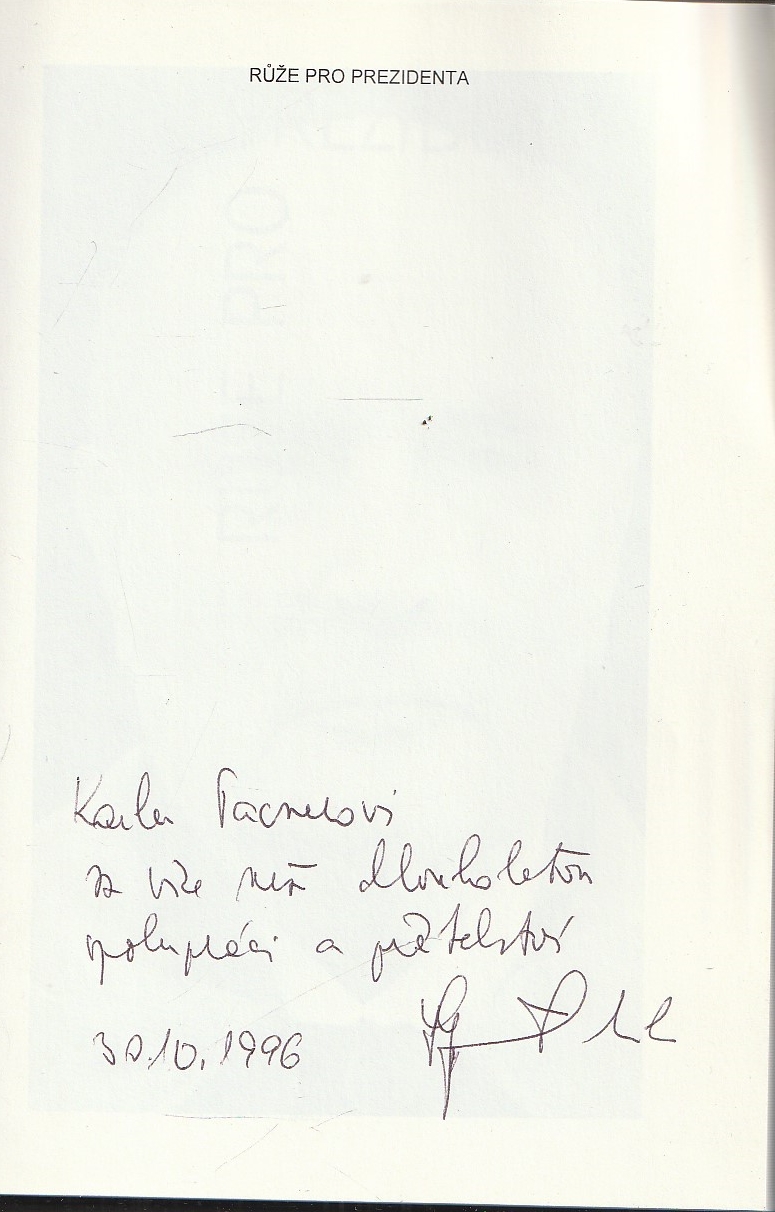 RŮŽE PRO PREZIDENTA
Karlu Pacnerovi
za více než dlouholetou
spolupráci a přátelství
30.10.1996